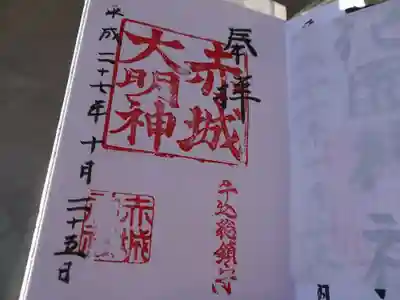 奉拝
赤城
大明神
牛込総鎮守
平成二十七年十月二十五日
赤城